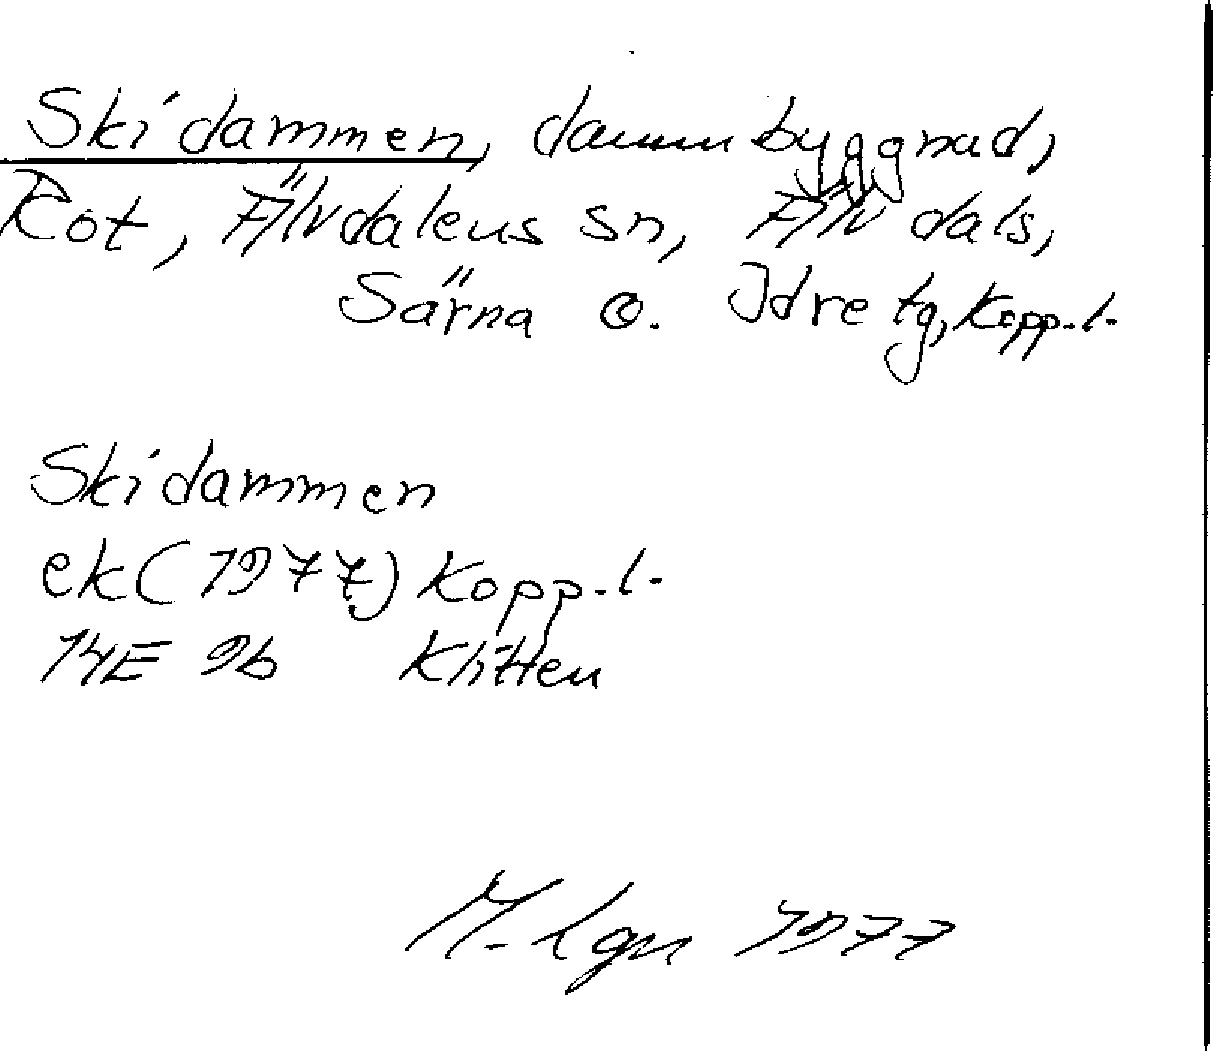 Skidammen, dammbyggnad,
Rot, Älvdalens sn, Älvdals,
Särna o. Idre tg, Kopp. l.
Skidammen
ek (1977) Kopp. l.
14E 9b Klitten
M. Lgn 1977